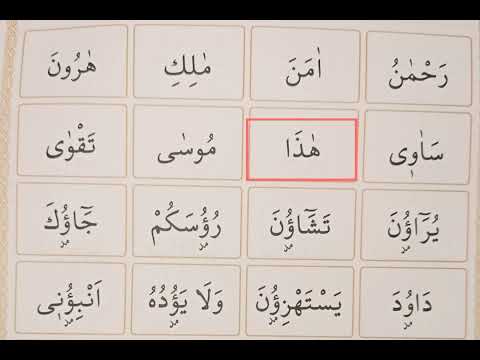 رَحْمٰنُ اٰمَنَ مٰلِكِ هٰرُونَ
سَاٰوٖى هٰذَا مُوسٰى تَقْوٰى
يُرَآؤُ۫نَ تَشَآؤُ۫نَ رُؤُ۫سَكُمْ جَآؤُ۫كَ
دَاوُ۫دَ يَسْتَهْزِؤُ۫نَ وَلَا يَؤُ۫دُهُ اَنْبِؤُ۫نٖى